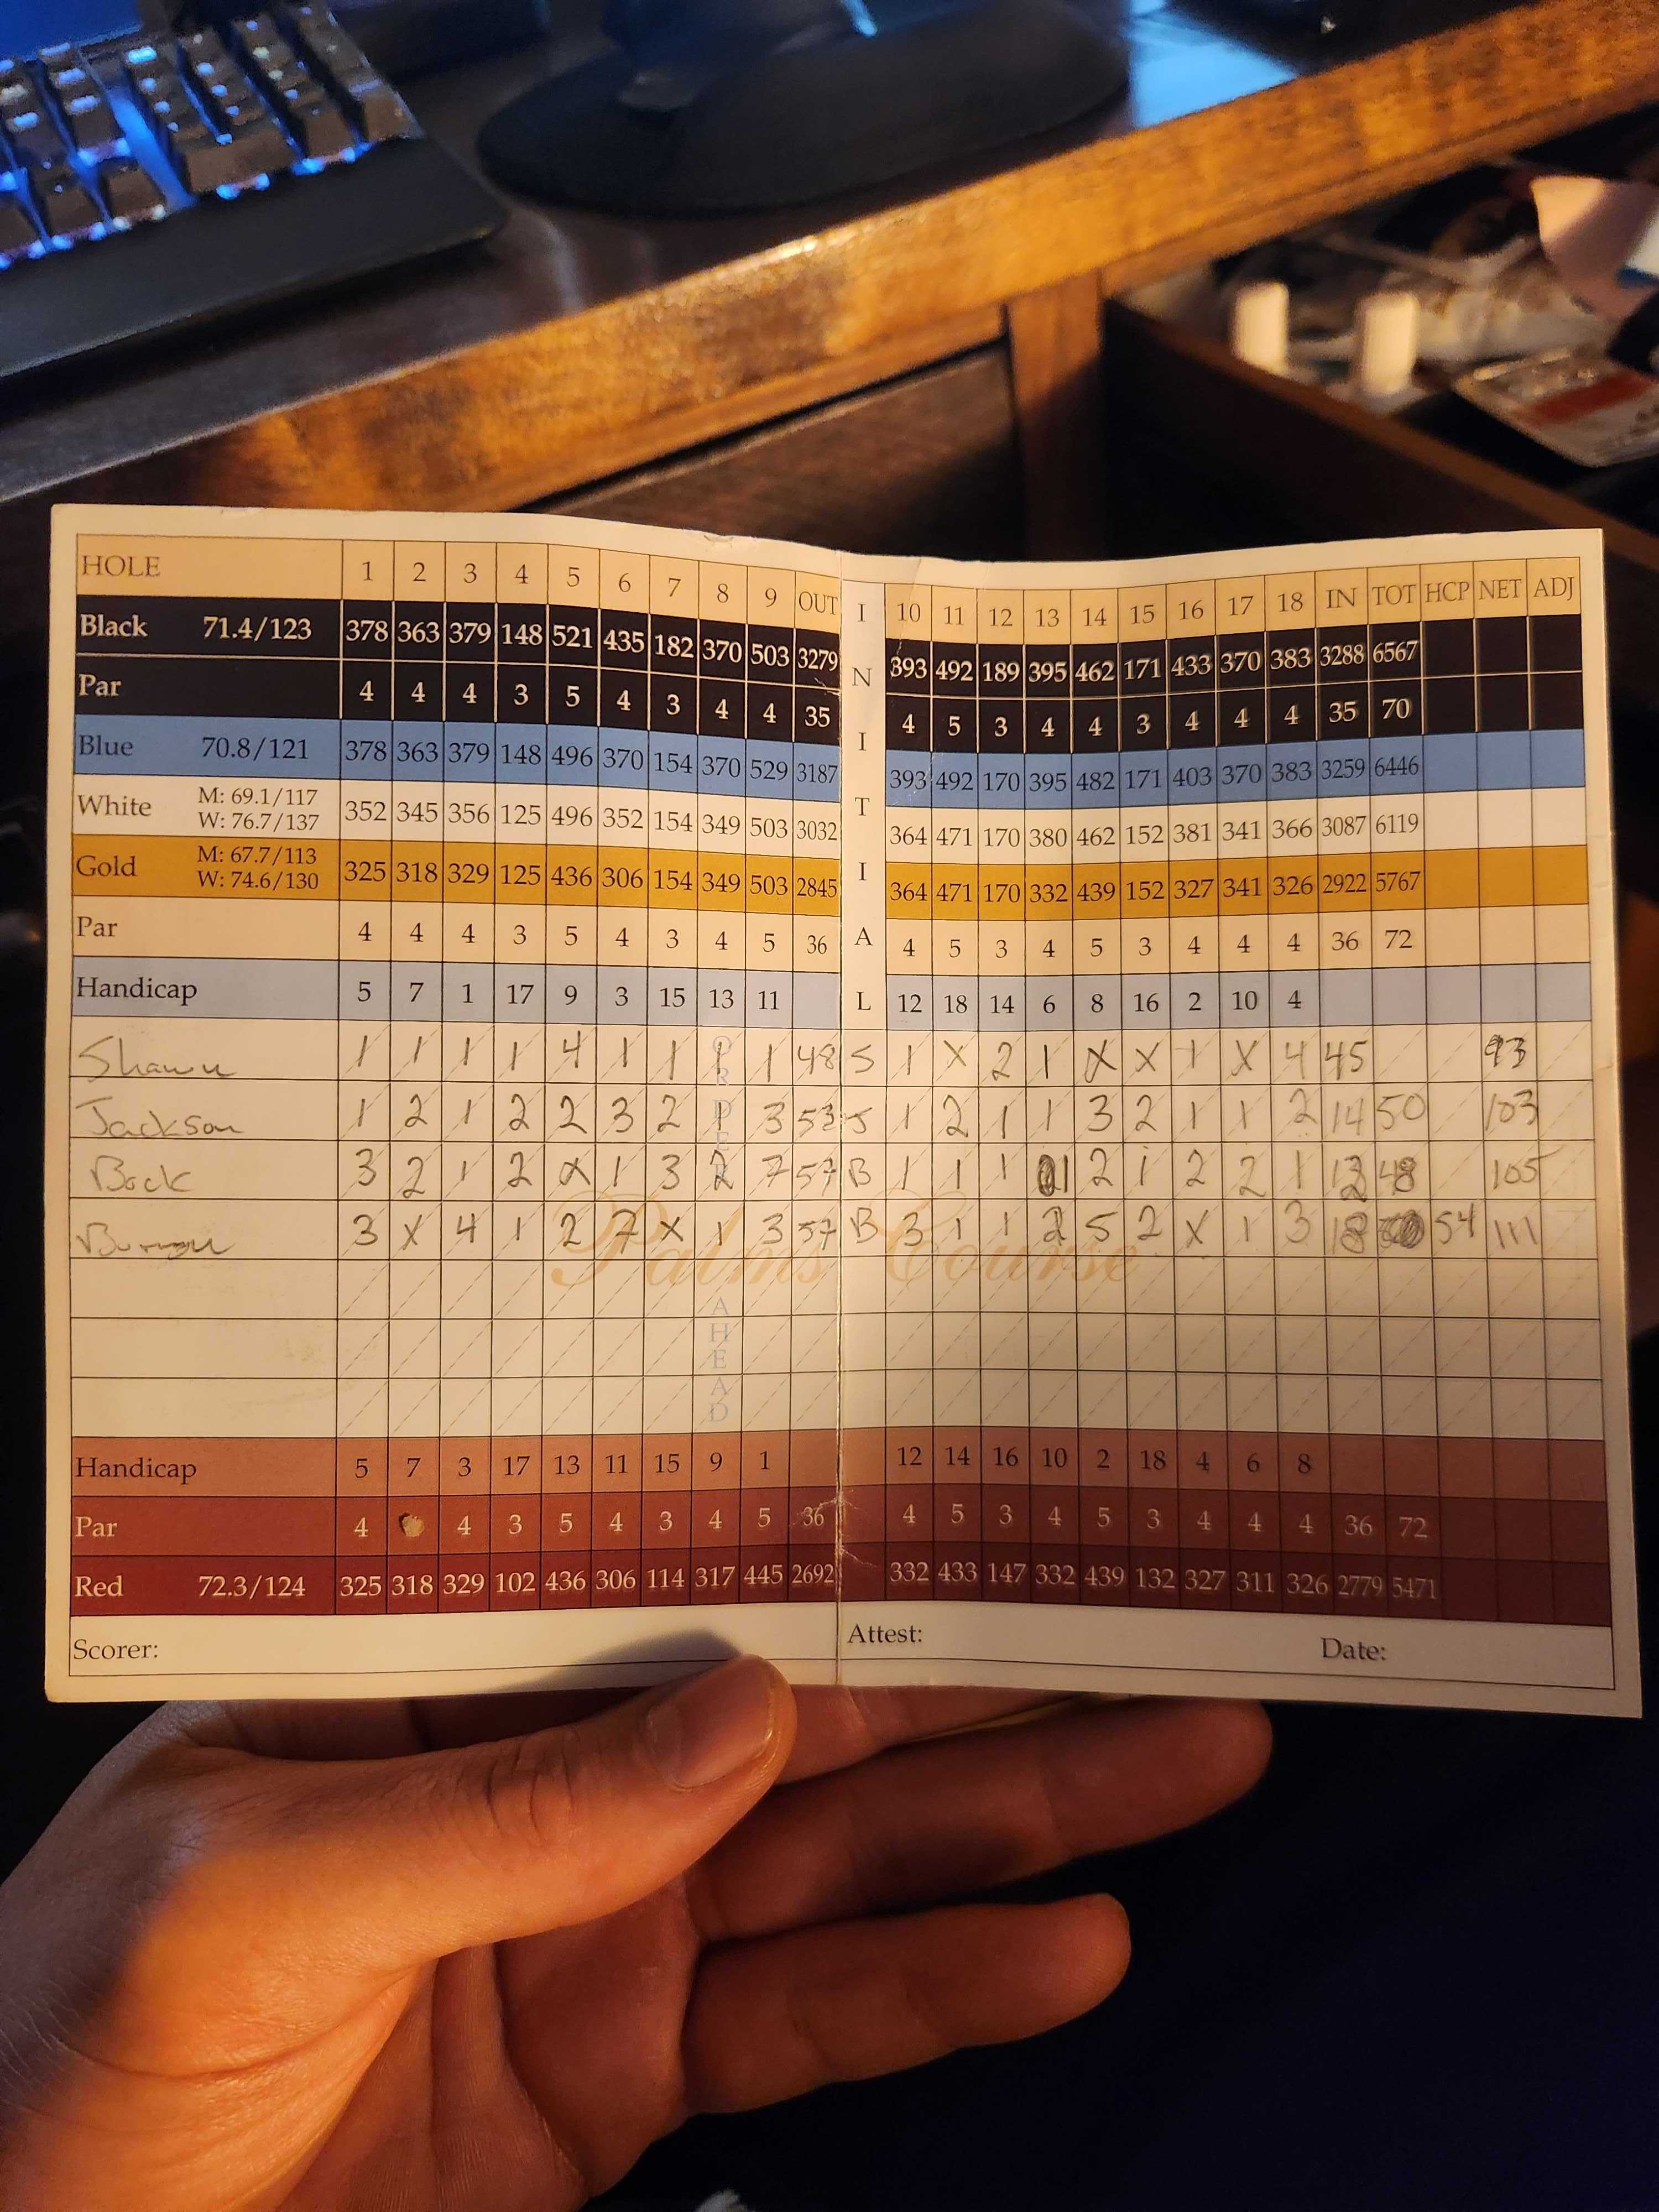 HOLE 1 2 3 4 5 6 7 8 9 OUT INITIAL 10 11 12 13 14 15 16 17 18 IN TOT HCP NET ADJ
Black 71.4/123 378 363 379 148 521 435 182 370 503 3279 393 492 189 395 462 171 433 370 383 3288 6567
Par 4 4 4 3 5 4 3 4 4 35 4 5 3 4 4 3 4 4 4 35 70
Blue 70.8/121 378 363 379 148 496 370 154 370 529 3187 393 492 170 395 482 171 403 370 383 3259 6446
White M: 69.1/117 W: 76.7/137 352 345 356 125 496 352 154 349 503 3032 364 471 170 380 462 152 381 341 366 3087 6119
Gold M: 67.7/113 W: 74.6/130 325 318 329 125 436 306 154 349 503 2845 364 471 170 332 439 152 327 341 326 2922 5767
Par 4 4 4 3 5 4 3 4 5 36 4 5 3 4 5 3 4 4 4 36 72
Handicap 5 7 1 17 9 3 15 13 11 12 18 14 6 8 16 2 10 4
Shawn 1 1 1 1 4 1 1 1 1 48 S 1 X 2 1 X X 1 X 4 45 93
Jackson 1 2 1 2 2 3 2 1 3 53 J 1 2 1 1 3 2 1 1 2 14 50 103
3 2 1 2 X 1 3 2 7 57 B 1 1 1 1 2 1 2 2 1 48 105
3 X 4 1 2 7 X 1 3 57 B 3 1 1 2 5 2 X 1 3 18 54 111
ORDER AHEAD
Palms Course
Handicap 5 7 3 17 13 11 15 9 1 12 14 16 10 2 18 4 6 8
Par 4 4 3 5 4 3 4 5 36 4 5 3 4 5 3 4 4 4 36 72
Red 72.3/124 325 318 329 102 436 306 114 317 445 2692 332 433 147 332 439 132 327 311 326 2779 5471
Scorer: Attest: Date: